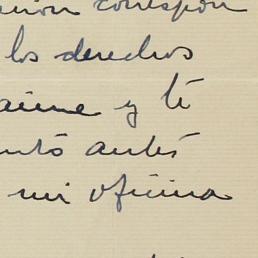 ción correspon
los derechos
aime y te
nto antes
mi oficina